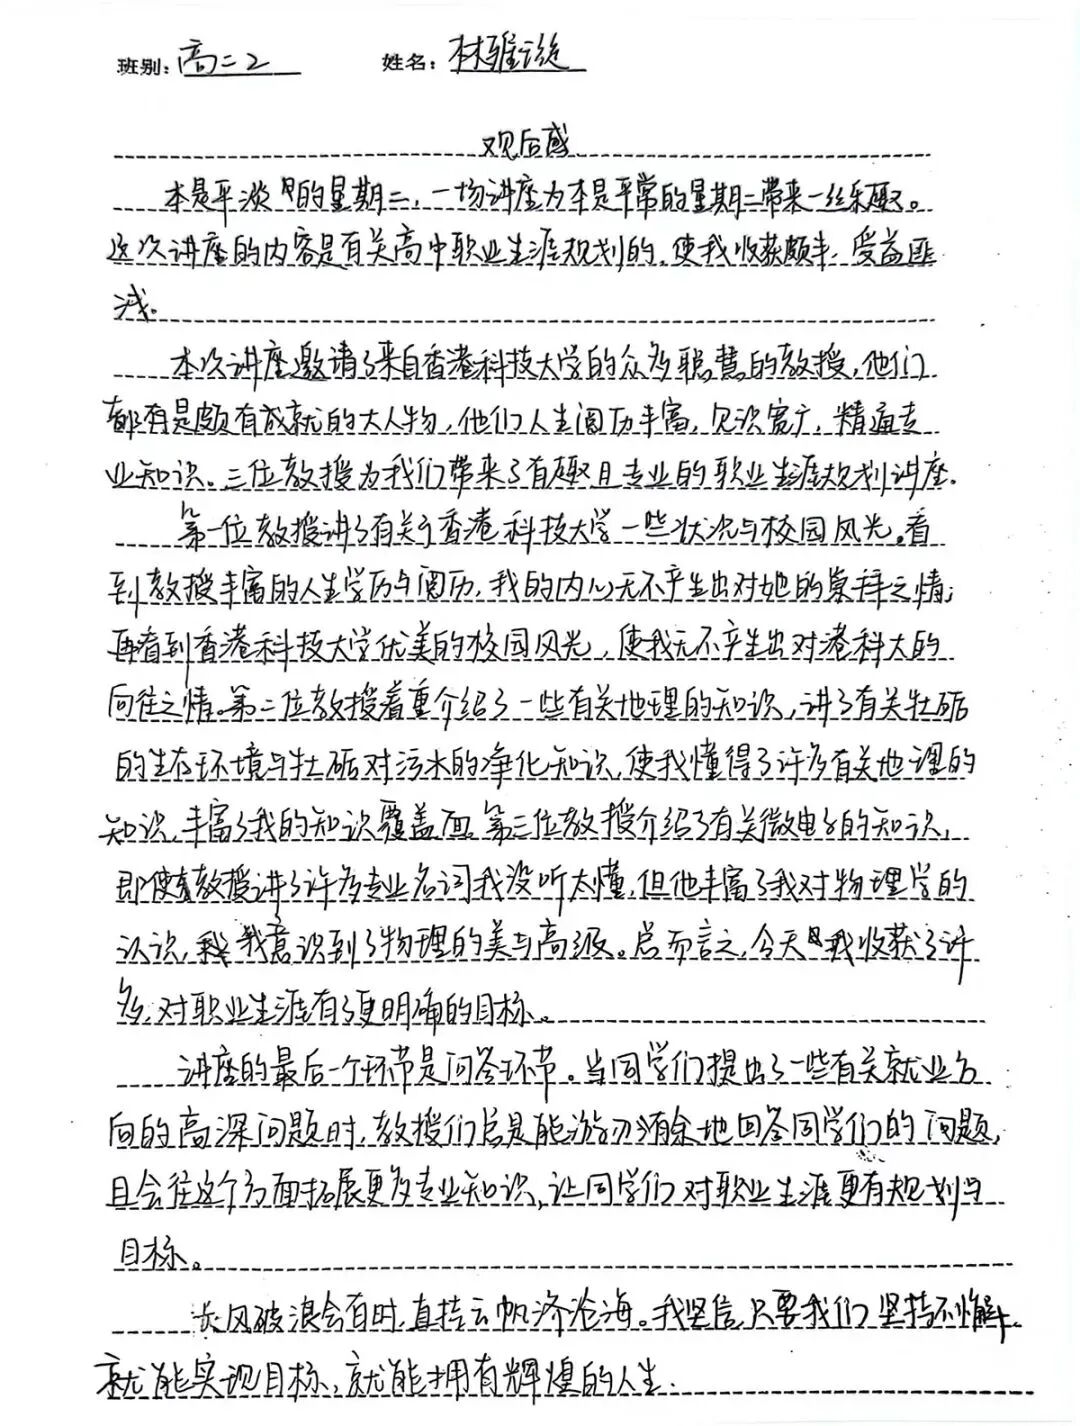 班别：高二2 姓名：林雅谊
观后感
本是平淡的星期二，一场讲座为本是平常的星期二带来一丝乐趣。
这次讲座的内容是有关高中职业生涯规划的，使我收获颇丰，受益匪
浅。
本次讲座邀请了来自香港科技大学的众多聪慧的教授，他们
都有是颇有成就的大人物，他们人生阅历丰富，见识宽广，精通专
业知识。三位教授为我们带来了有趣且专业的职业生涯规划讲座。
第一位教授讲了有关于香港科技大学一些状况与校园风光。看
到教授丰富的人生学历与阅历，我的内心无不产生出对她的崇拜之情；
再看到香港科技大学优美的校园风光，使我无不产生出对港科大的
向往之情。第二位教授着重介绍了一些有关地理的知识，讲了有关牡砺
的生存环境与牡砺对污水的净化知识，使我懂得了许多有关地理的
知识，丰富了我的知识覆盖面。第三位教授介绍了有关微电子的知识，
即使教授讲了许多专业名词我没听太懂，但他丰富了我对物理学的
认识，我意识到了物理的美与高级。总而言之，今天我收获了许
多，对职业生涯有了更明确的目标。
讲座的最后一个环节是问答环节。当同学们提出了一些有关就业方
向的高深问题时，教授们总是能游刃有余地回答同学们的问题，
且会往这个方面拓展更多专业知识，让同学们对职业生涯更有规划与
目标。
长风破浪会有时，直挂云帆济沧海。我坚信，只要我们坚持不懈，
就能实现目标，就能拥有辉煌的人生。